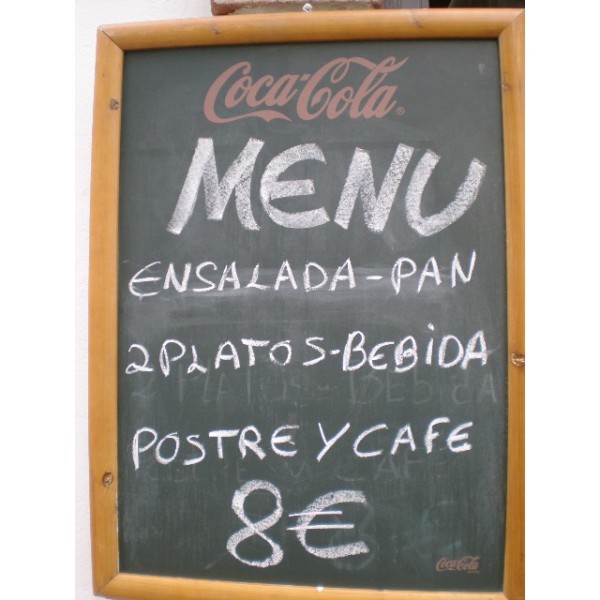 Coca-Cola
MENU
ENSALADA-PAN
2 PLATOS-BEBiDA
POSTRE Y CAFE
8€
Coca-Cola